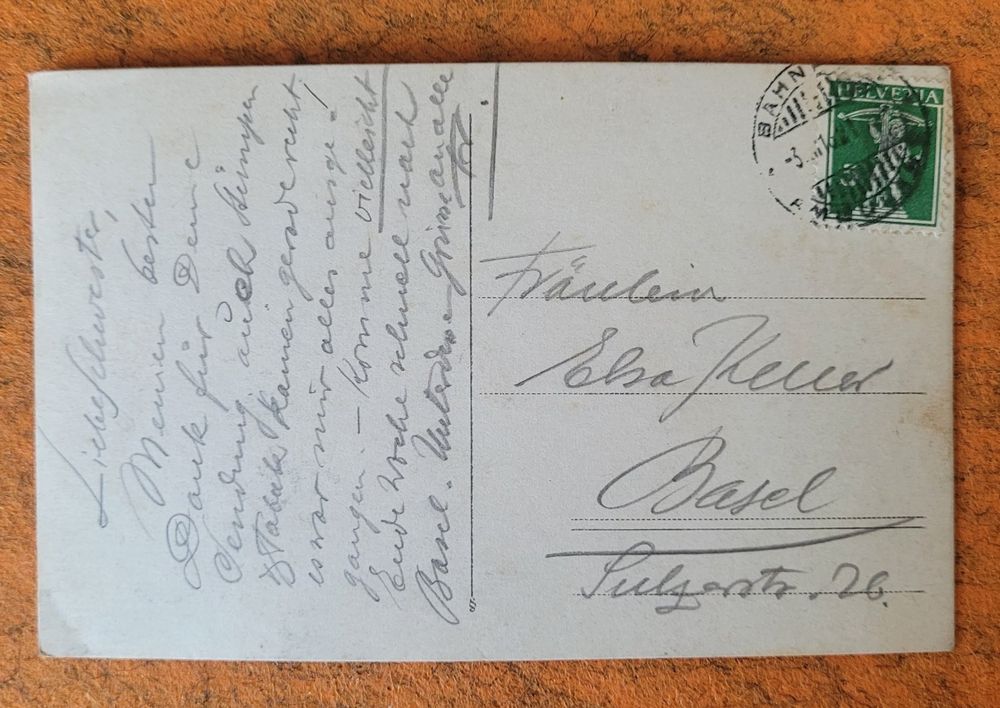 Liebe Schwester,
Meinen besten
Dank für Deine
Sendung, auch
Tabak kamen gerade recht.
es war mir alles ausge-
gangen. – Komme vielleicht
Ende Woche schnell nach
Basel. Unterdessen Grüsse an alle
HELVETIA
BAHN
Fräulein
Elsa Keller
Basel
Sulzerstr. 26.